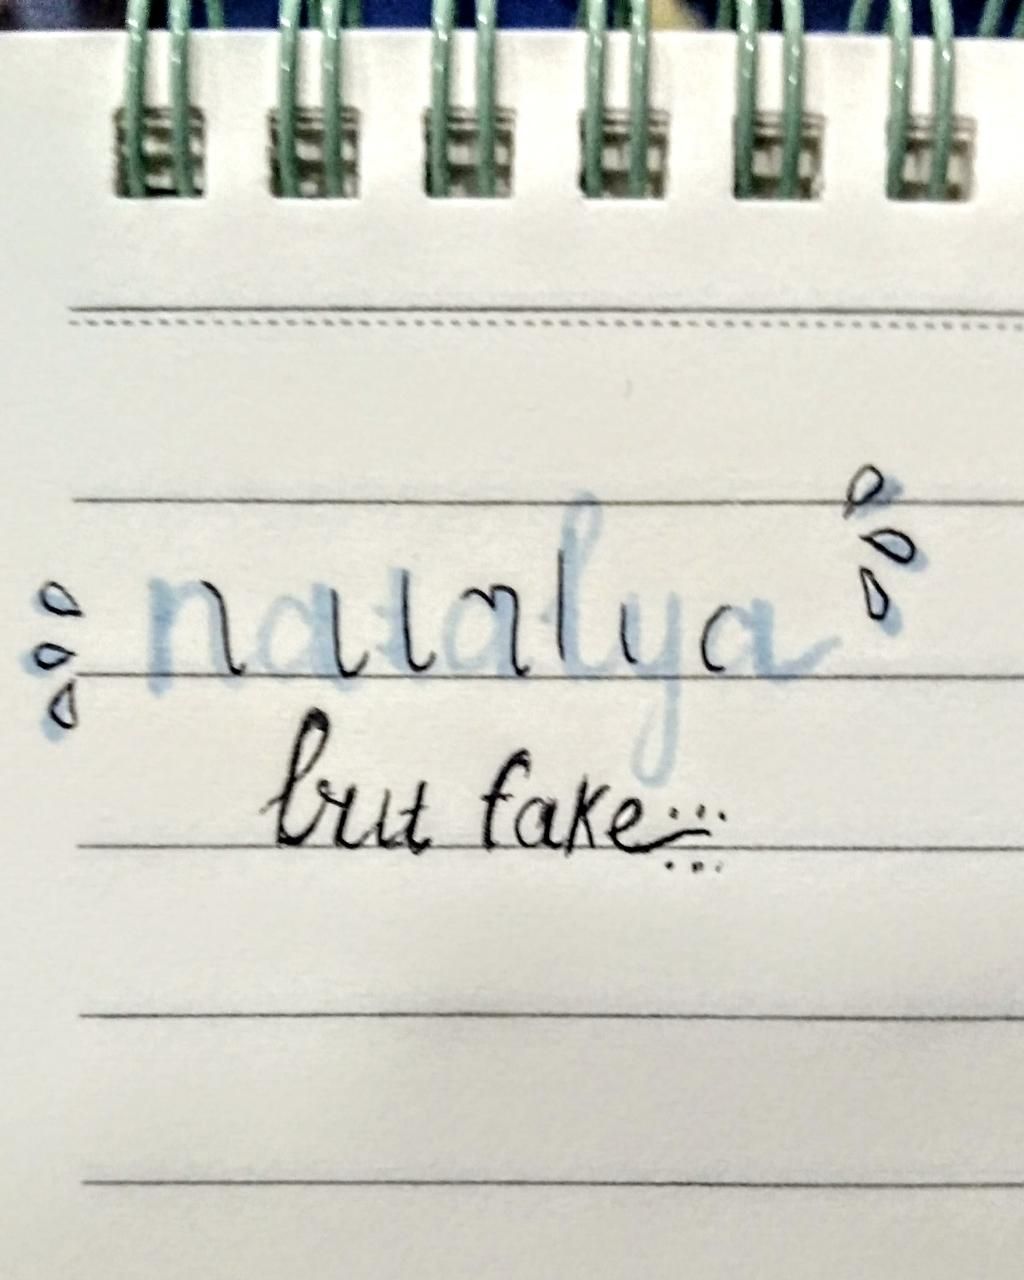 natalya
but fake...